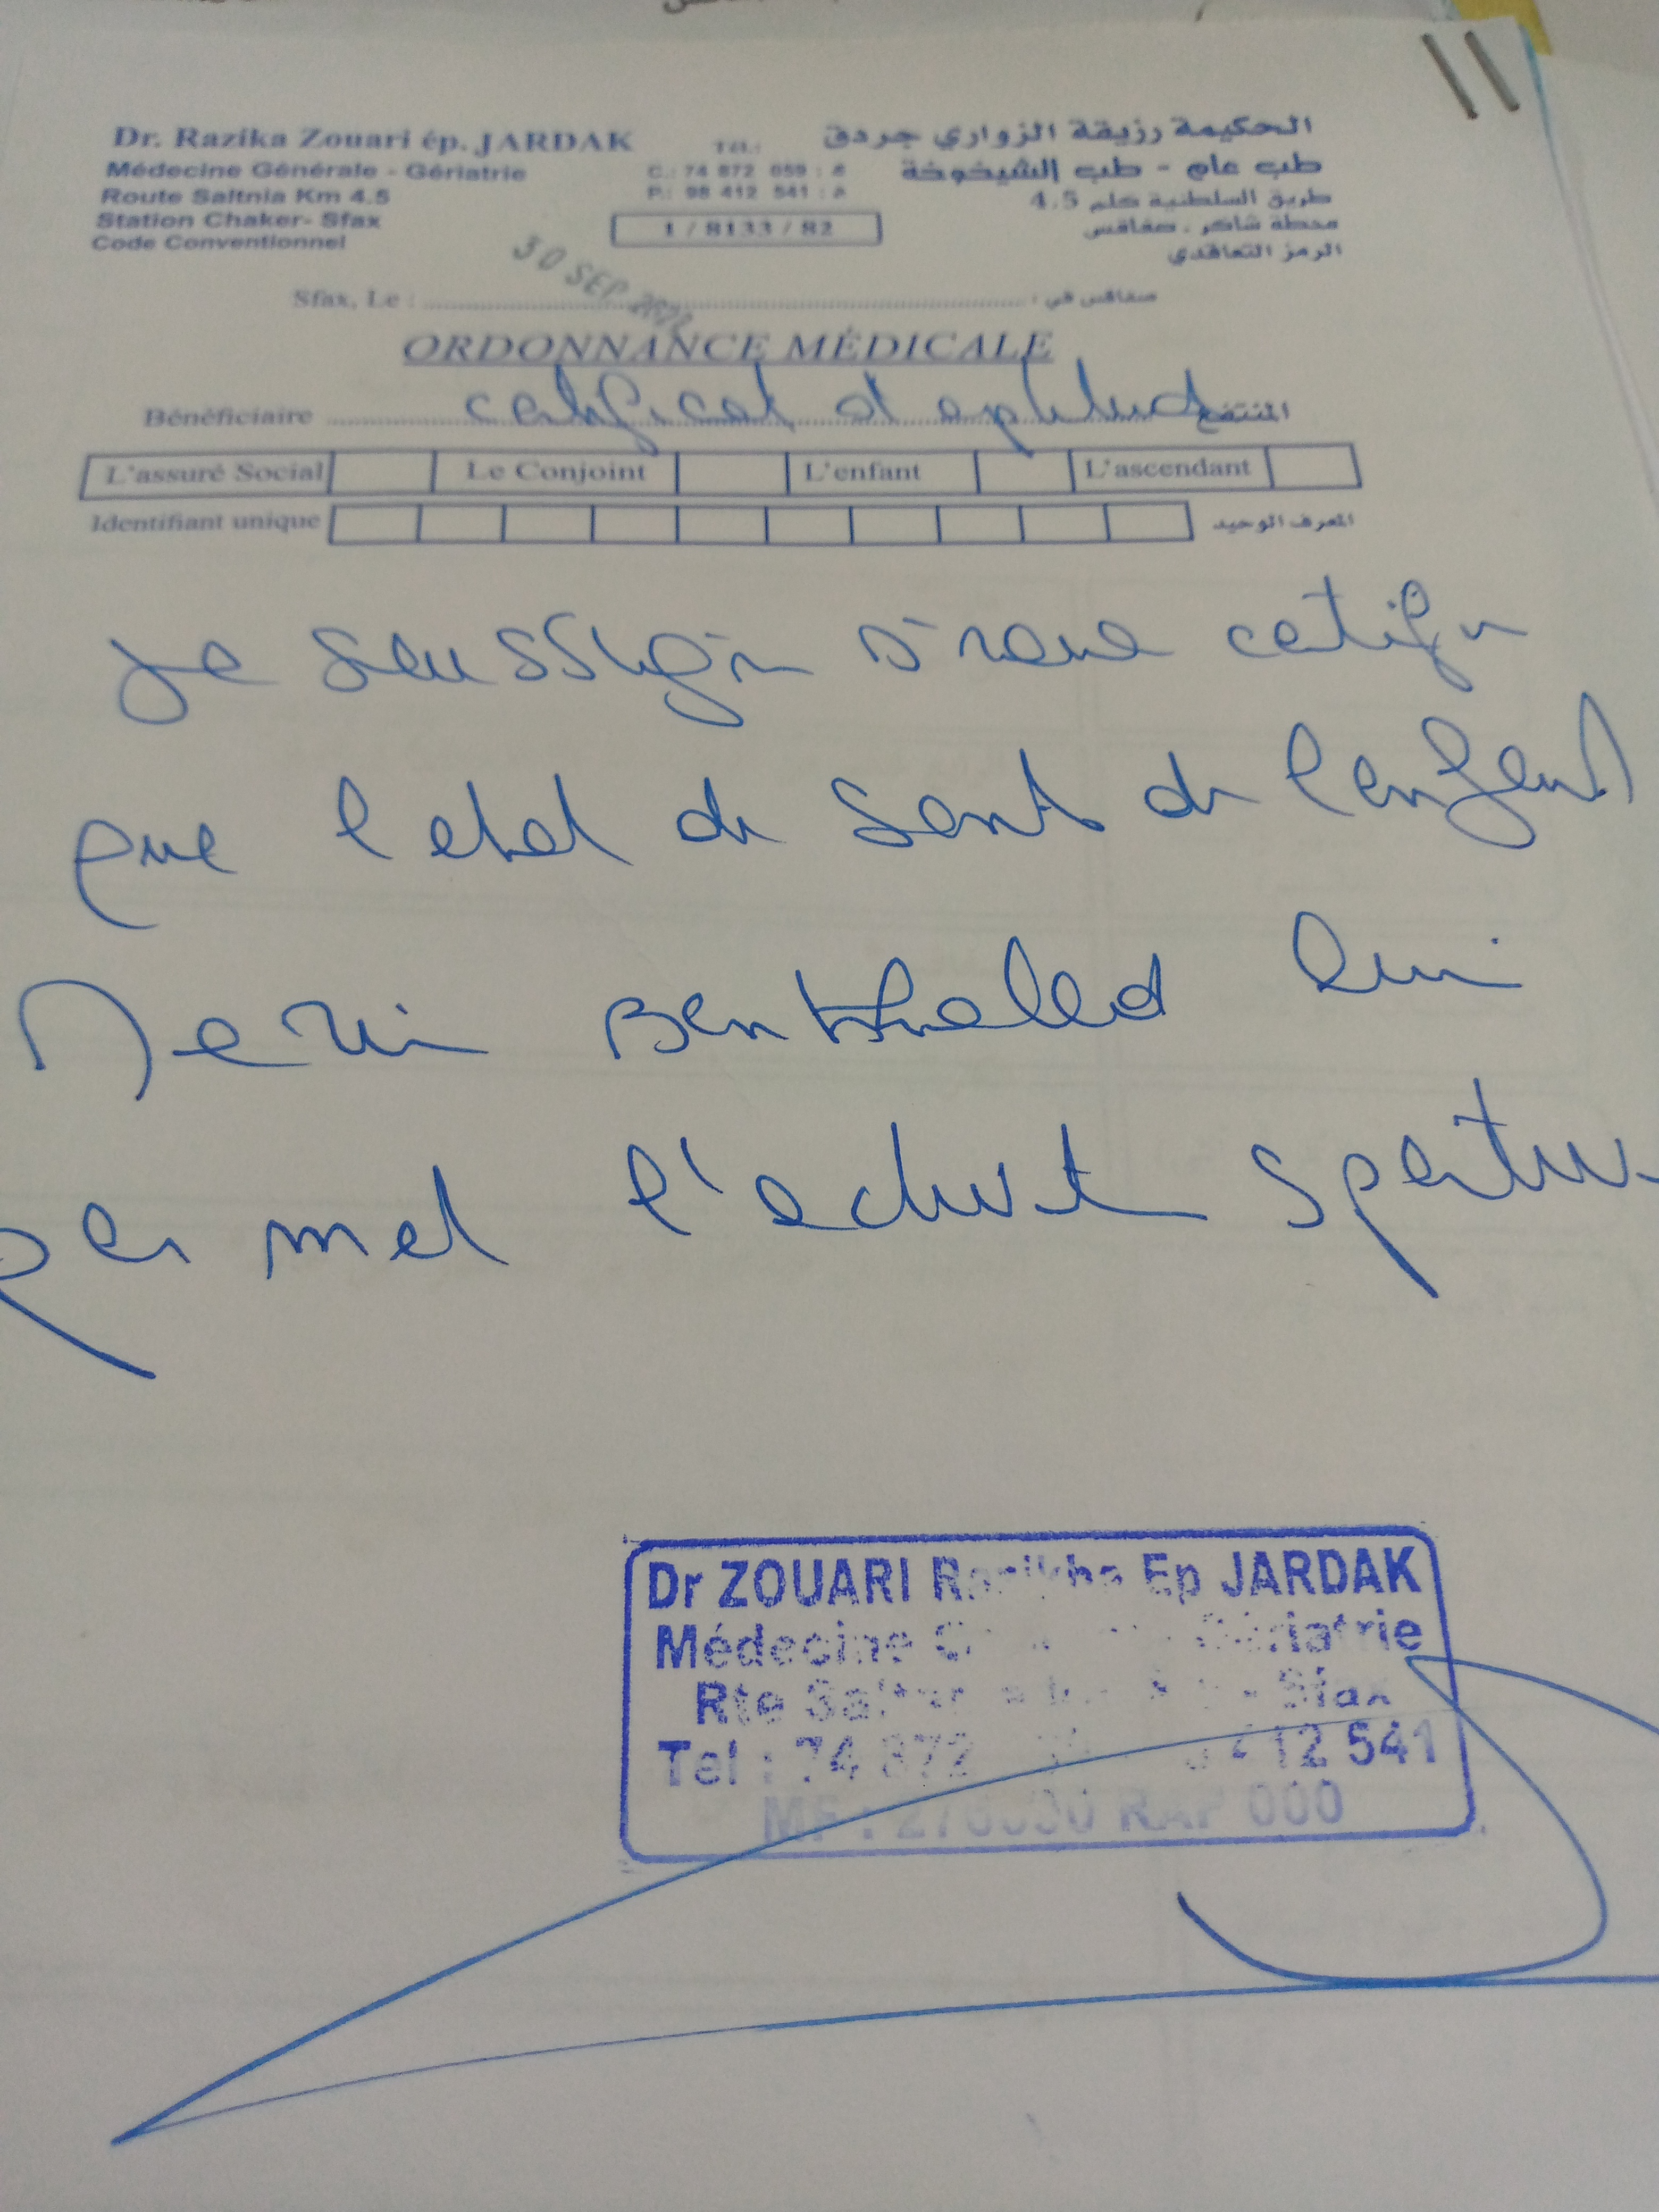 Dr. Razika Zouari ép. JARDAK
Médecine Générale - Gériatrie
Route Saltnia Km 4.5
Station Chaker- Sfax
Code Conventionnel
Tél.:
C.: 74 872 059 : ع
P.: 98 412 541 : م
1 / 8133 / 82
الحكيمة رزيقة الزواري جردق
طب عام - طب الشيخوخة
طريق السلطنية كلم 4.5
محطة شاكر . صفاقس
الرمز التعاقدي
30 SEP
Sfax, Le : : صفاقس في
ORDONNANCE MÉDICALE
Bénéficiaire certificat d'aptitude المنتفع
L'assuré Social Le Conjoint L'enfant L'ascendant
Identifiant unique المعرف الوحيد
je soussigné certifie
que l'etat de santé de l'enfant
Ben Khaled lui
permet l'activité sportive
Dr ZOUARI Ep JARDAK
Médecine Gériatrie
Rte Sfax
Tel : 74 872 412 541
RAP 000